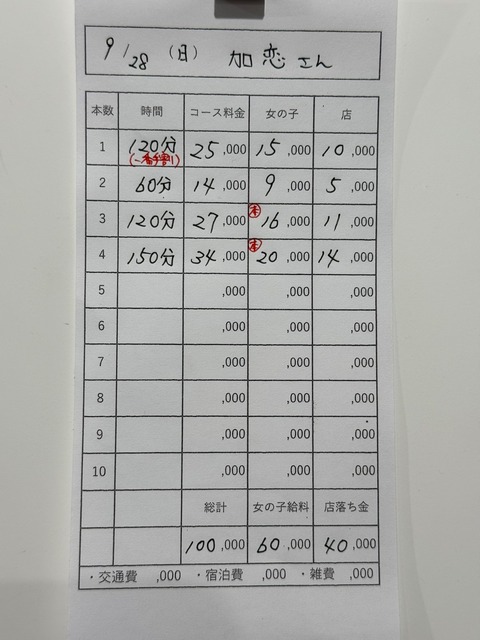 9/28 (日) 加恋さん
本数 時間 コース料金 女の子 店
1 120分 25,000 15,000 10,000
(一番手割)
2 60分 14,000 9,000 5,000
3 120分 27,000 本 16,000 11,000
4 150分 34,000 本 20,000 14,000
5 ,000 ,000 ,000
6 ,000 ,000 ,000
7 ,000 ,000 ,000
8 ,000 ,000 ,000
9 ,000 ,000 ,000
10 ,000 ,000 ,000
総計 女の子給料 店落ち金
100,000 60,000 40,000
・交通費 ,000 ・宿泊費 ,000 ・雑費 ,000